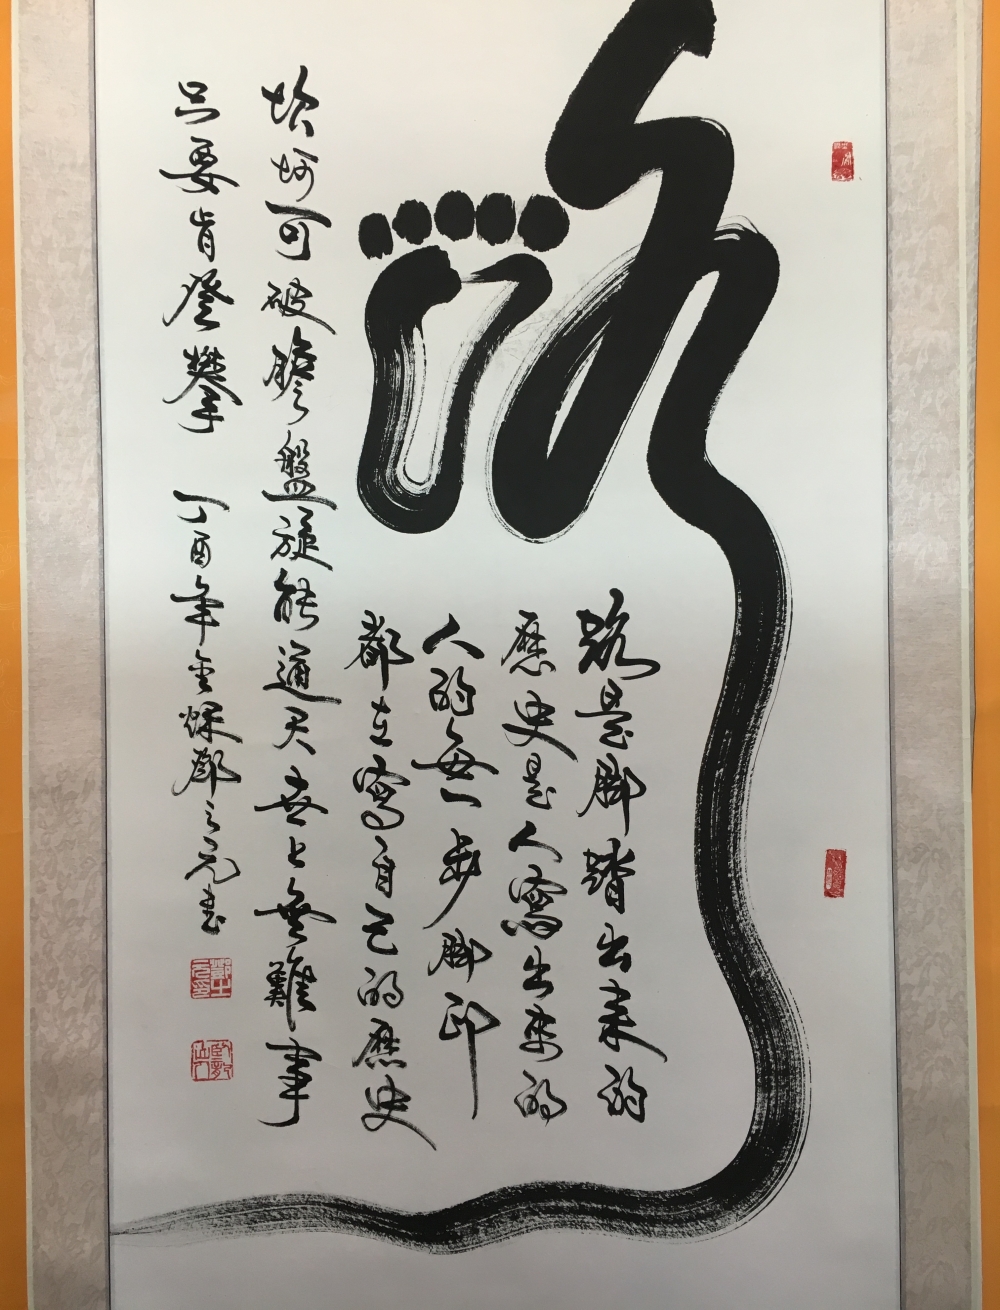 路
路是脚踏出来的
歷史是人寫出来的
人的每一步脚印
都在寫自己的歷史
坎坷可破膽盤旋能通天世上無難事
只要肯登攀 丁酉年金秋鄧之元書